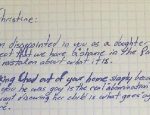 Christine:
m disappointed in you as a daughter
ect that we have a shame in the fa
mistaken about what it is.
king Chad out of your home simply becau
you he was gay is the real abomination
ent disowning her child is what goes aga
re.